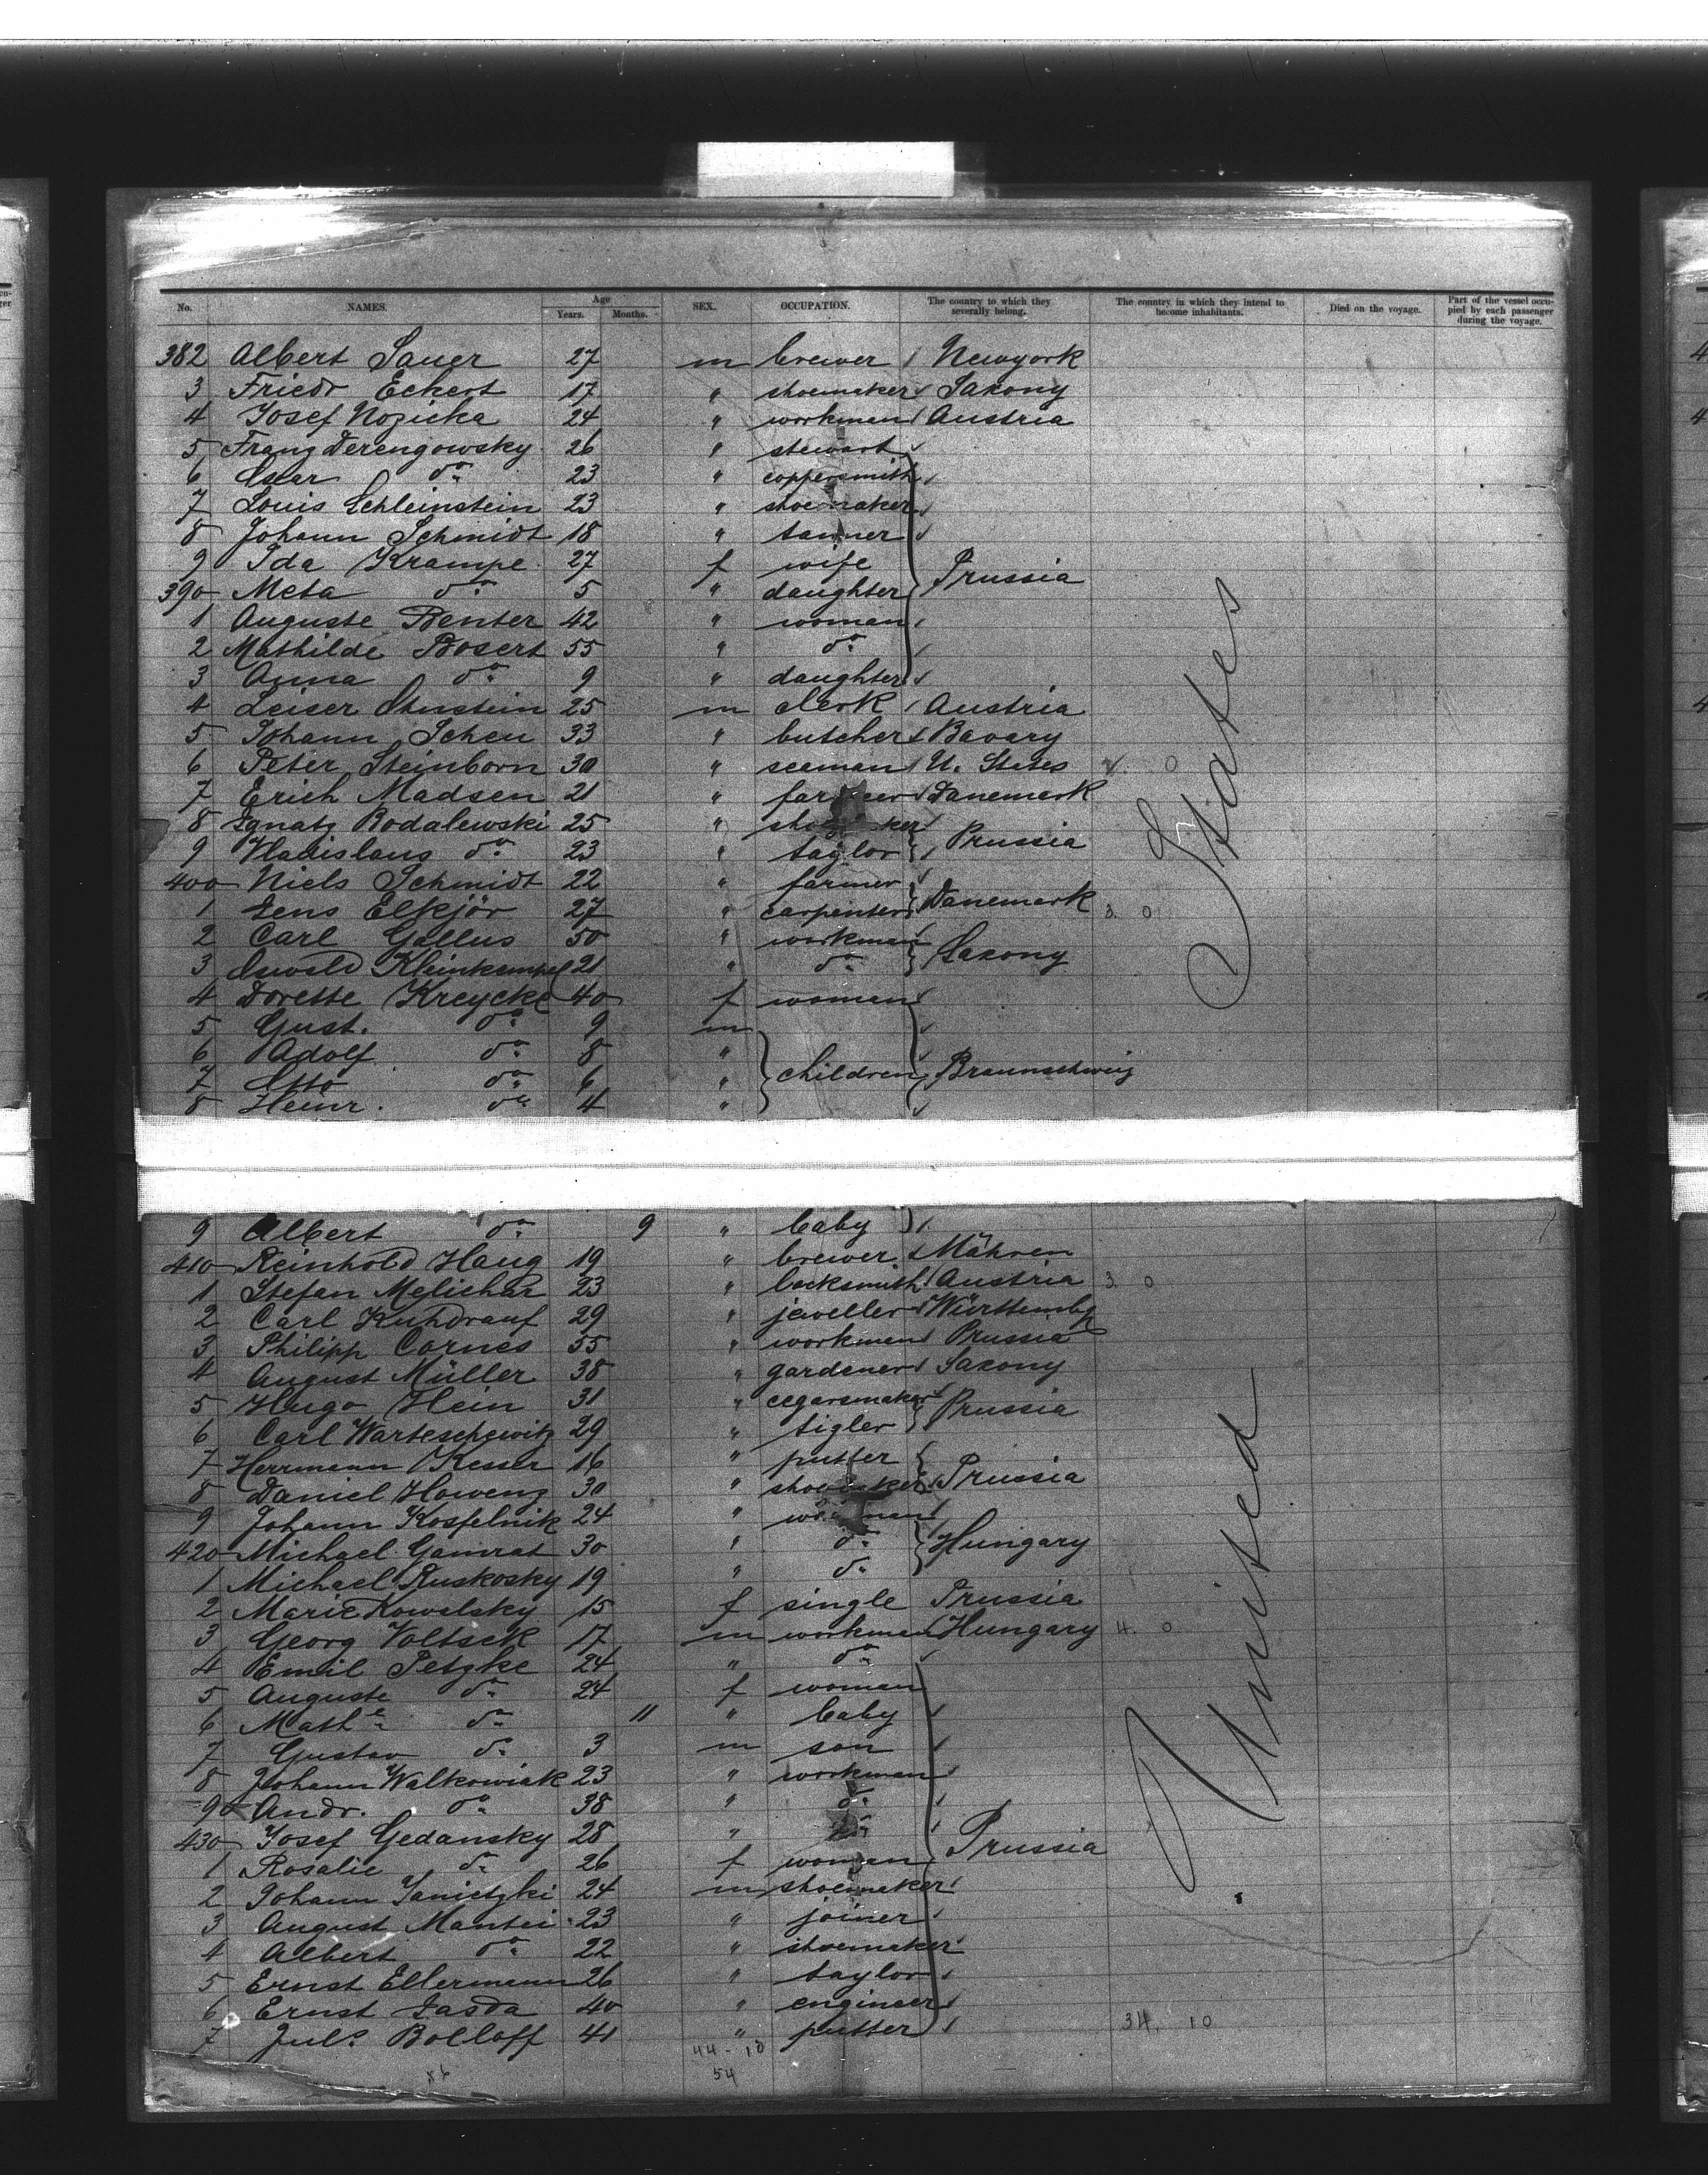 No. NAMES. Age Years. Months. SEX. OCCUPATION. The country to which they severally belong. The country in which they intend to become inhabitants. Died on the voyage. Part of the vessel occupied by each passenger during the voyage.
382 Albert Sauer 27 m brewer Newyork
3 Friedr Eckert 17 " shoemaker Saxony
4 Josef Nozicka 24 " workman Austria
5 Franz Derengowsky 26 " stewart
6 Oscar do. 23 " coppersmith
7 Louis Schleinstein 23 " shoemaker
8 Johann Schmidt 18 " tanner
9 Ida Krampe 27 f wife Prussia
390 Meta do. 5 " daughter
1 Auguste Benter 42 " woman
2 Mathilde Bosert 55 " do.
3 Anna do. 9 " daughter
4 Leiser 25 m clerk Austria
5 Johann Scheu 33 " butcher Bavary
6 Peter Steinborn 30 " seaman U. States 0
7 Erich Madsen 21 " farmer Danemark
8 Ignatz Rodalewski 25 " shoemaker Prussia
9 Vladislaus do. 23 " taylor
400 Niels Schmidt 22 " farmer Danemark
1 Jens Elkjör 27 " carpenter 3. 0
2 Carl Gallus 50 " workman Saxony
3 Oswald Kleinkempel 21 " do.
4 Dorette Kreycke 40 f woman
5 Gust. do. 9 m
6 Adolf do. 8 "
7 Otto do. 6 " children Braunschweig
8 Heinr. do. 4 "
States
9 Albert do. 9 " baby
410 Reinhold Haug 19 " brewer Mähren
1 Stefan Melichar 23 " locksmith Austria 3. 0
2 Carl Kuhdrauf 29 " jeweller Württembg
3 Philipp Cornes 55 " workman Prussia
4 August Müller 38 " gardener Saxony
5 Hugo Hein 31 " cegarsmaker Prussia
6 Carl Warteschewitz 29 " tigler
7 Herrmann Kesser 16 " putter Prussia
8 Daniel Howeng 30 " shoemaker
9 Johann Kosfelnik 24 " workman
420 Michael Gamrat 30 " do. Hungary
1 Michael Ruskosky 19 " do.
2 Marie Kowelsky 15 f single Prussia
3 Georg Voltsek 17 m workman Hungary 4. 0
4 Emil Petzke 24 " do.
5 Auguste do. 24 f woman
6 Mathe. do. 11 " baby
7 Gustav do. 3 m son
8 Johann Walkowiak 23 " workman
9 Andr. do. 38 " do.
430 Josef Gedansky 28 " do. Prussia
1 Rosalie do. 26 f woman
2 Johann Janietzki 24 m shoemaker
3 August Mantei 23 " joiner
4 Albert do. 22 " shoemaker
5 Ernst Ellermann 26 " taylor
6 Ernst Jasda 40 " engineer
7 Juls. Bolloff 41 " putter 34. 10
United
44-10
54